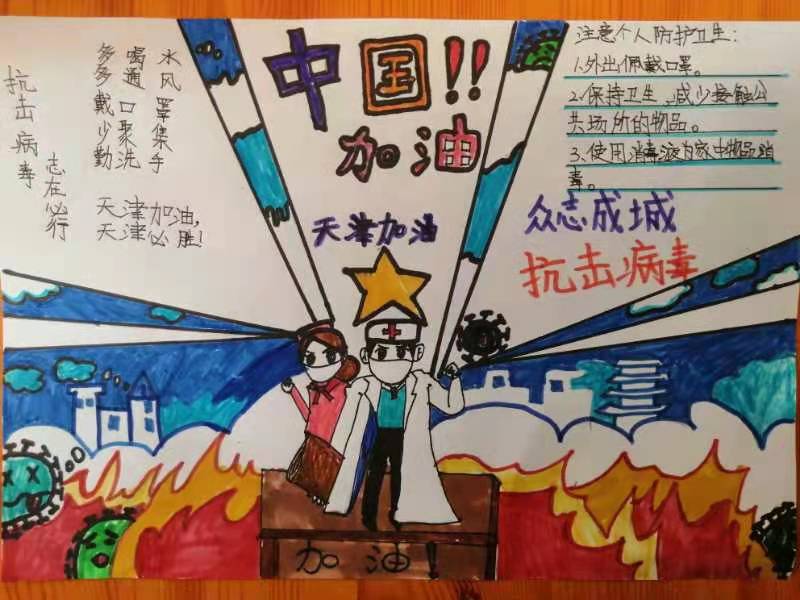 抗击病毒
志在必行
多喝水
多通风
戴口罩
少聚集
勤洗手
天津加油,
天津必胜!
中国!!
加油
天津加油
注意个人防护卫生:
1.外出佩戴口罩。
2.保持卫生,减少接触公
共场所的物品。
3.使用消毒液为家中物品消
毒。
众志成城
抗击病毒
加油!